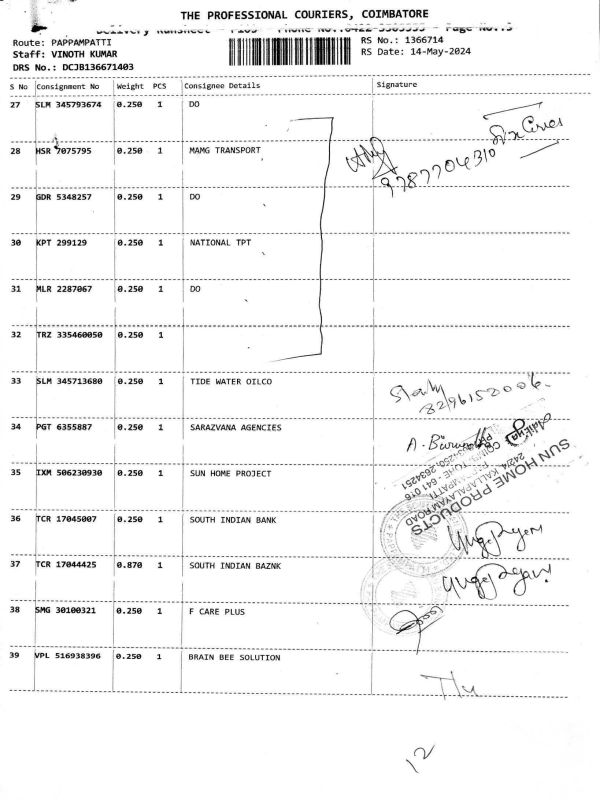 THE PROFESSIONAL COURIERS, COIMBATORE
Delivery Runsheet - Page No.:3
Route: PAPPAMPATTI
Staff: VINOTH KUMAR
DRS No.: DCJB136671403
RS No.: 1366714
RS Date: 14-May-2024
S No Consignment No Weight PCS Consignee Details Signature
27 SLM 345793674 0.250 1 DO
28 HSR 7075795 0.250 1 MAMG TRANSPORT
9787704310
29 GDR 5348257 0.250 1 DO
30 KPT 299129 0.250 1 NATIONAL TPT
31 MLR 2287067 0.250 1 DO
32 TRZ 335460050 0.250 1
33 SLM 345713680 0.250 1 TIDE WATER OILCO
34 PGT 6355887 0.250 1 SARAZVANA AGENCIES
35 IXM 506230930 0.250 1 SUN HOME PROJECT
SUN HOME PRODUCTS
242/4, KALLAPALAYAM ROAD
36 TCR 17045007 0.250 1 SOUTH INDIAN BANK
37 TCR 17044425 0.870 1 SOUTH INDIAN BAZNK
38 SMG 30100321 0.250 1 F CARE PLUS
39 VPL 516938396 0.250 1 BRAIN BEE SOLUTION
12